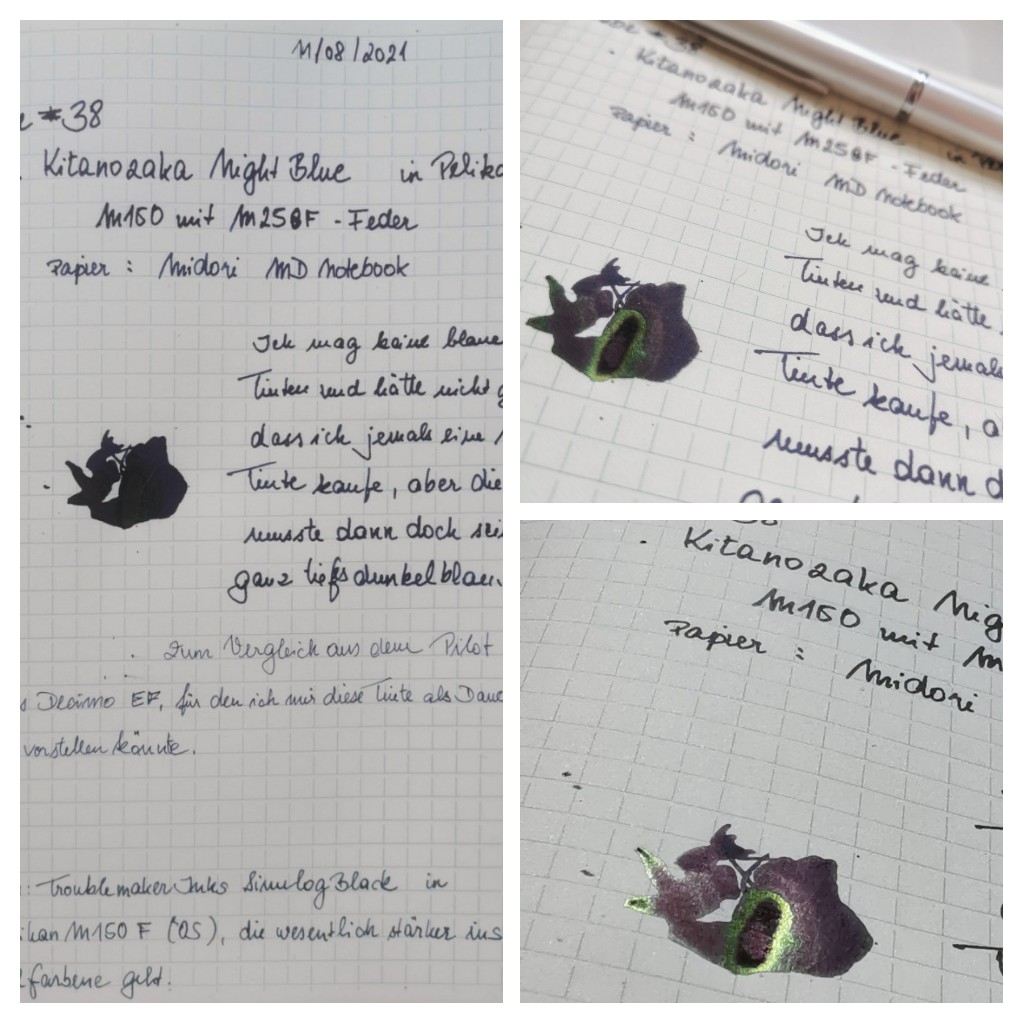 11/08/2021
*38
Kitanozaka Night Blue in Pelika
M150 mit M250F - Feder
Papier : Midori MD Notebook
Ich mag keine blaue
Tinten und hätte nicht g
dass ich jemals eine
Tinte kaufe, aber die
musste dann doch sei
ganz tiefdunkelblau
Zum Vergleich aus dem Pilot
s Decimo EF, für den ich mir diese Tinte als Daue
vorstellen könnte.
: Troublemaker Inks Simulog Black in
ikan M150 F (OS), die wesentlich stärker ins
farbene geht.
*38
Kitanozaka Night Blue in
M150 mit M250F - Feder
Papier : Midori MD Notebook
Ich mag keine
Tinten und hätte
dass ich jemals
Tinte kaufe, a
musste dann d
38
Kitanozaka Nig
M150 mit M
Papier : Midori